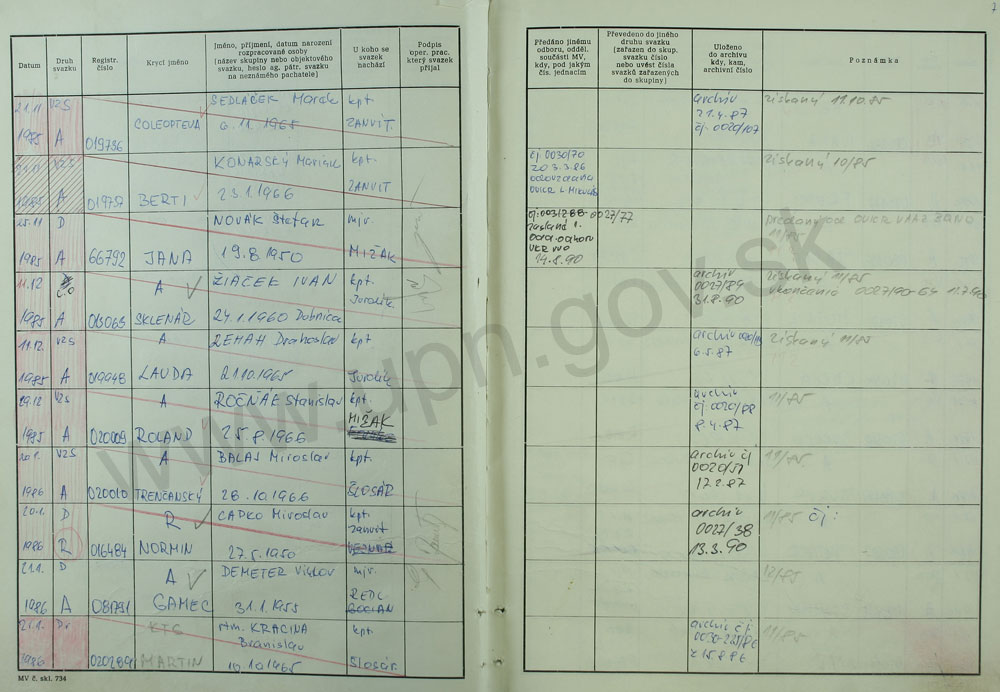 7
Datum
Druh svazku
Registr. číslo
Krycí jméno
Jméno, příjmení, datum narození
rozpracované osoby
(název skupiny nebo objektového
svazku, heslo ag. pátr. svazku
na neznámého pachatele)
U koho se
svazek
nachází
Podpis
oper. prac.
který svazek
přijal
Předáno jinému
odboru, odděl.
součásti MV,
kdy, pod jakým
čís. jednacím
Převedeno do jiného
druhu svazku
(zařazen do skup.
svazku číslo
nebo uvést čísla
svazků zařazených
do skupiny)
Uloženo
do archivu
kdy, kam,
archivní číslo
Poznámka
21.11 VZS SEDLAČEK Marek kpt. archiv získaný 11.10.85
COLEOPTEVA 6.11.1965 ZANVIT. 21.4.87
1985 A 019736 čj. 0020/107
VZS KONARSKÝ Marián kpt. čj 0030/70 získaný 10/85
20.3.86
1985 A 019737 BERTI 23.1.1966 ZANVIT
25.11 D NOVÁK Štefan mjr.
1985 A 66792 JANA 19.8.1950 MIŽÁK
14.8.90
11.12 A ŽIAČEK IVAN kpt. archiv získaný 11/85
č.o Jurolík 0027/89 ukončenie 0027/70-64 11.7.90
31.8.90
1985 A 013063 SKLENÁR 24.1.1960 Dubnica
11.12. VZS A ZEMAN Drahoslav kpt archiv získaný 11/85
6.5.87
1985 A 019948 LAUDA 21.10.1965 Jurolík
29.12 VZS A ROČŇÁK Stanislav kpt. archiv 11/85
MIŽÁK čj 0020/88
1985 A 020009 ROLAND 25.8.1966 8.4.87
20.1. VZS A BALAJ Miroslav kpt. archiv čj 11/85
0020/51
1986 A 020010 TRENČANSKÝ 28.10.1966 ŠLOSÁR 17.2.87
20.1. D R CAPKO Miroslav kpt. archiv 11/85 čj:
zanvit 0027/38
1986 R 016484 NORMIN 27.5.1950 13.3.90
21.1. D A DEMETER Viktor mjr. 12/85
1986 A GAMEC 31.1.1955
21.1. KTG rtm. KRACINA kpt. archiv čj 11/85
Branislav
1986 020289 MARTIN 10.10.1965 Slosár
MV č. skl. 734
www.upn.gov.sk